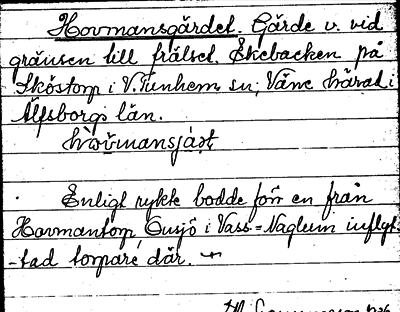 Hovmansgärdet. Gärde v. vid
gränsen till frälset. Ekebacken på
Sköstorp i V. Tunhem sn; Väne härad i
Älfsborgs län.
Enligt rykte bodde förr en från
Hovmantorp, Onsjö i Vass-Naglum inflyt-
-tad torpare där.